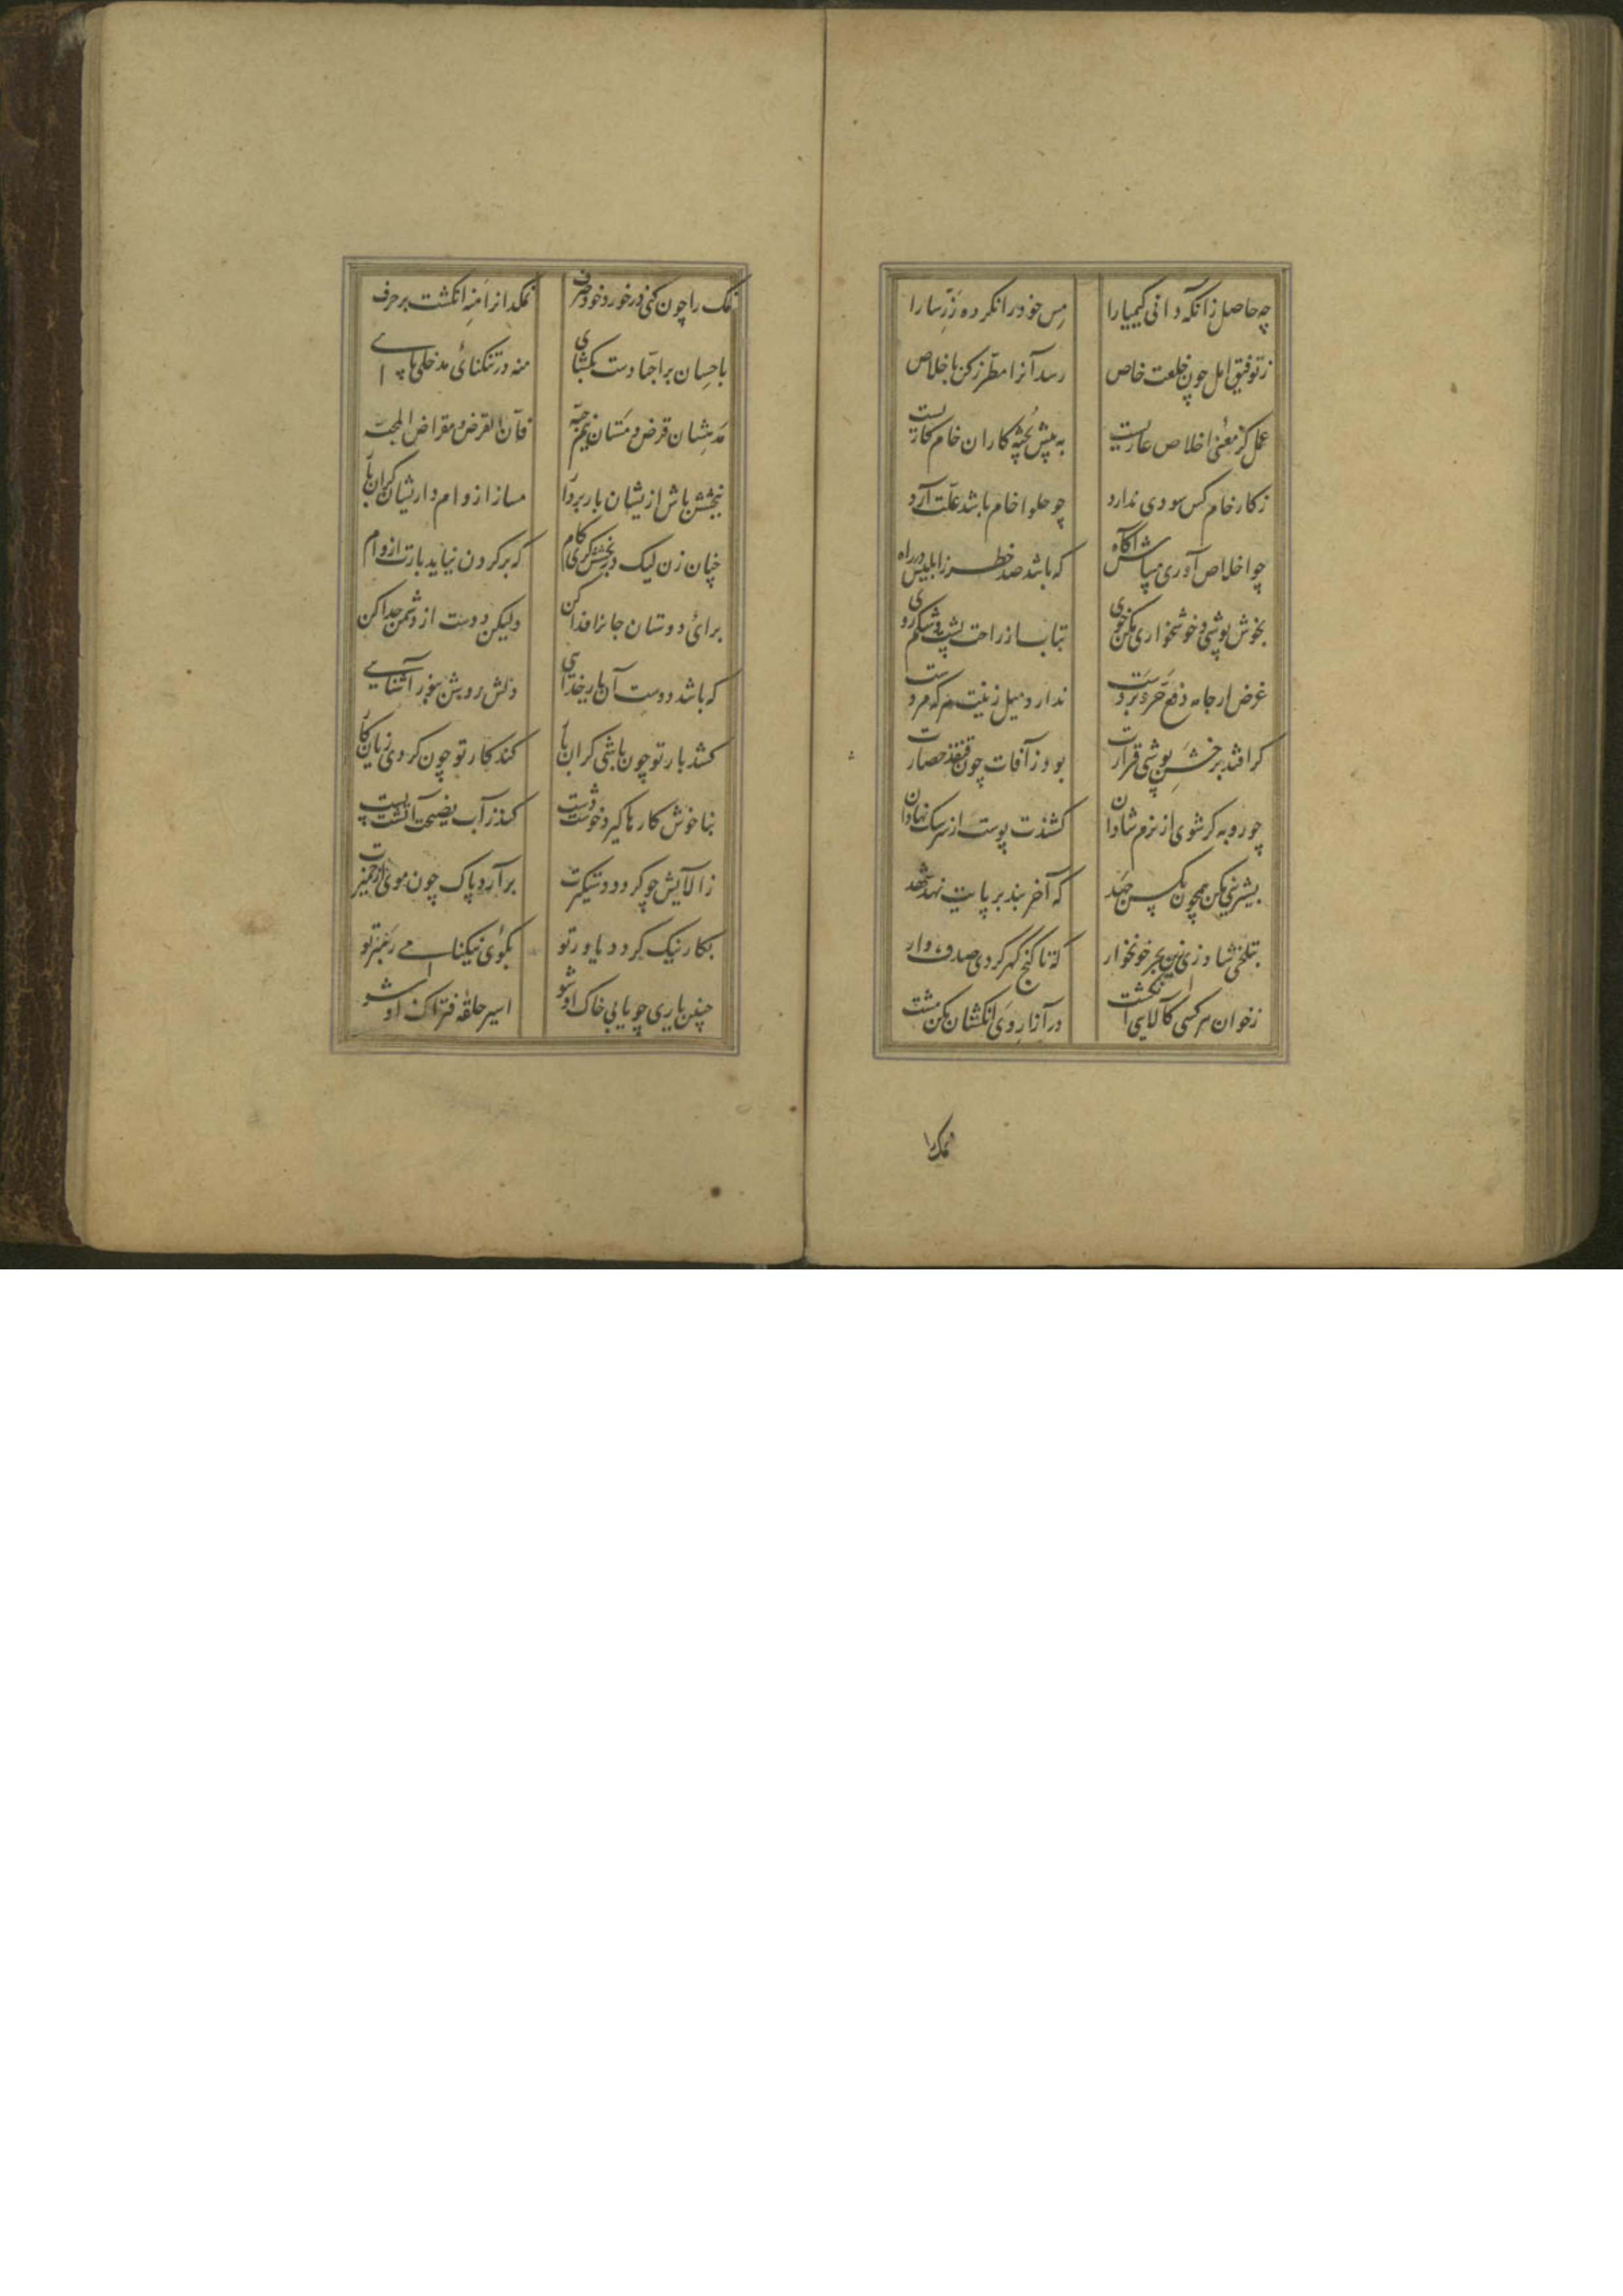 چه حاصل زانکه دانی کیمیا را
مس خود را نکرده زر سارا
ز توفیق امل چون خلعت خاص
رسد آنرا مطرز کن باخلاص
عمل کز معنی اخلاص عاریست
به پیش پخته کاران خام کاریست
ز کار خام کس سودی ندارد
چو حلوا خام باشد علت آرد
چو اخلاص آوری میباش آگاه
که باشد صد خطر ز ابلیس در راه
بخوش پوشی و خوشخواری مکن خوی
بتاب از راحت پشت و شکم روی
غرض از جامه دفع حر و بردست
ندارد میل زینت هر که مردست
گر افتد بر خشن پوشی قرارت
بود ز آفات چون قنفذ حصارت
چو روبه گر شوی از نرم شادان
کشندت پوست از سر سگ نهادان
بشیرینی مکن همچون مگس جهد
که آخر بند بر پایت نهد شهد
بتلخی شاد زی زین بحر خونخوار
که تا گنج گهر گردی صدف وار
ز خوان هر کسی کالایی انگشت
در آزار وی انگشتان مکن مشت
نمک را
نمک را چون کنی در خورد خود صرف
نمکدانرا منه انگشت بر حرف
باحسان بر احبا دست بگشای
منه در تنگنای مدخلی پای
مدهشان قرض و مستان نیم حبه
فان القرض مقراض المحبه
ببخشش باش ازیشان بار بردار
مساز از وام داریشان گران بار
چنان زن لیک در بخشش گری گام
که بر گردن نیاید بارت از وام
برای دوستان جانرا فدا کن
ولیکن دوست از دشمن جدا کن
که باشد دوست آن یار خدایی
دلش روشن بنور آشنایی
کشد بار تو چون باشی گران بار
کند کار تو چون گردی زیان کار
بناخوش کارها گیرد خوشت دست
کند ز آب نصیحت آتشت پست
ز آلایش چو گردد دستگیرت
بر آرد پاک چون موی از خمیرت
بکار نیک گردد یاور تو
بکوی نیکنامی رهبر تو
چنین یاری چو یابی خاک او شو
اسیر حلقه فتراک او شو